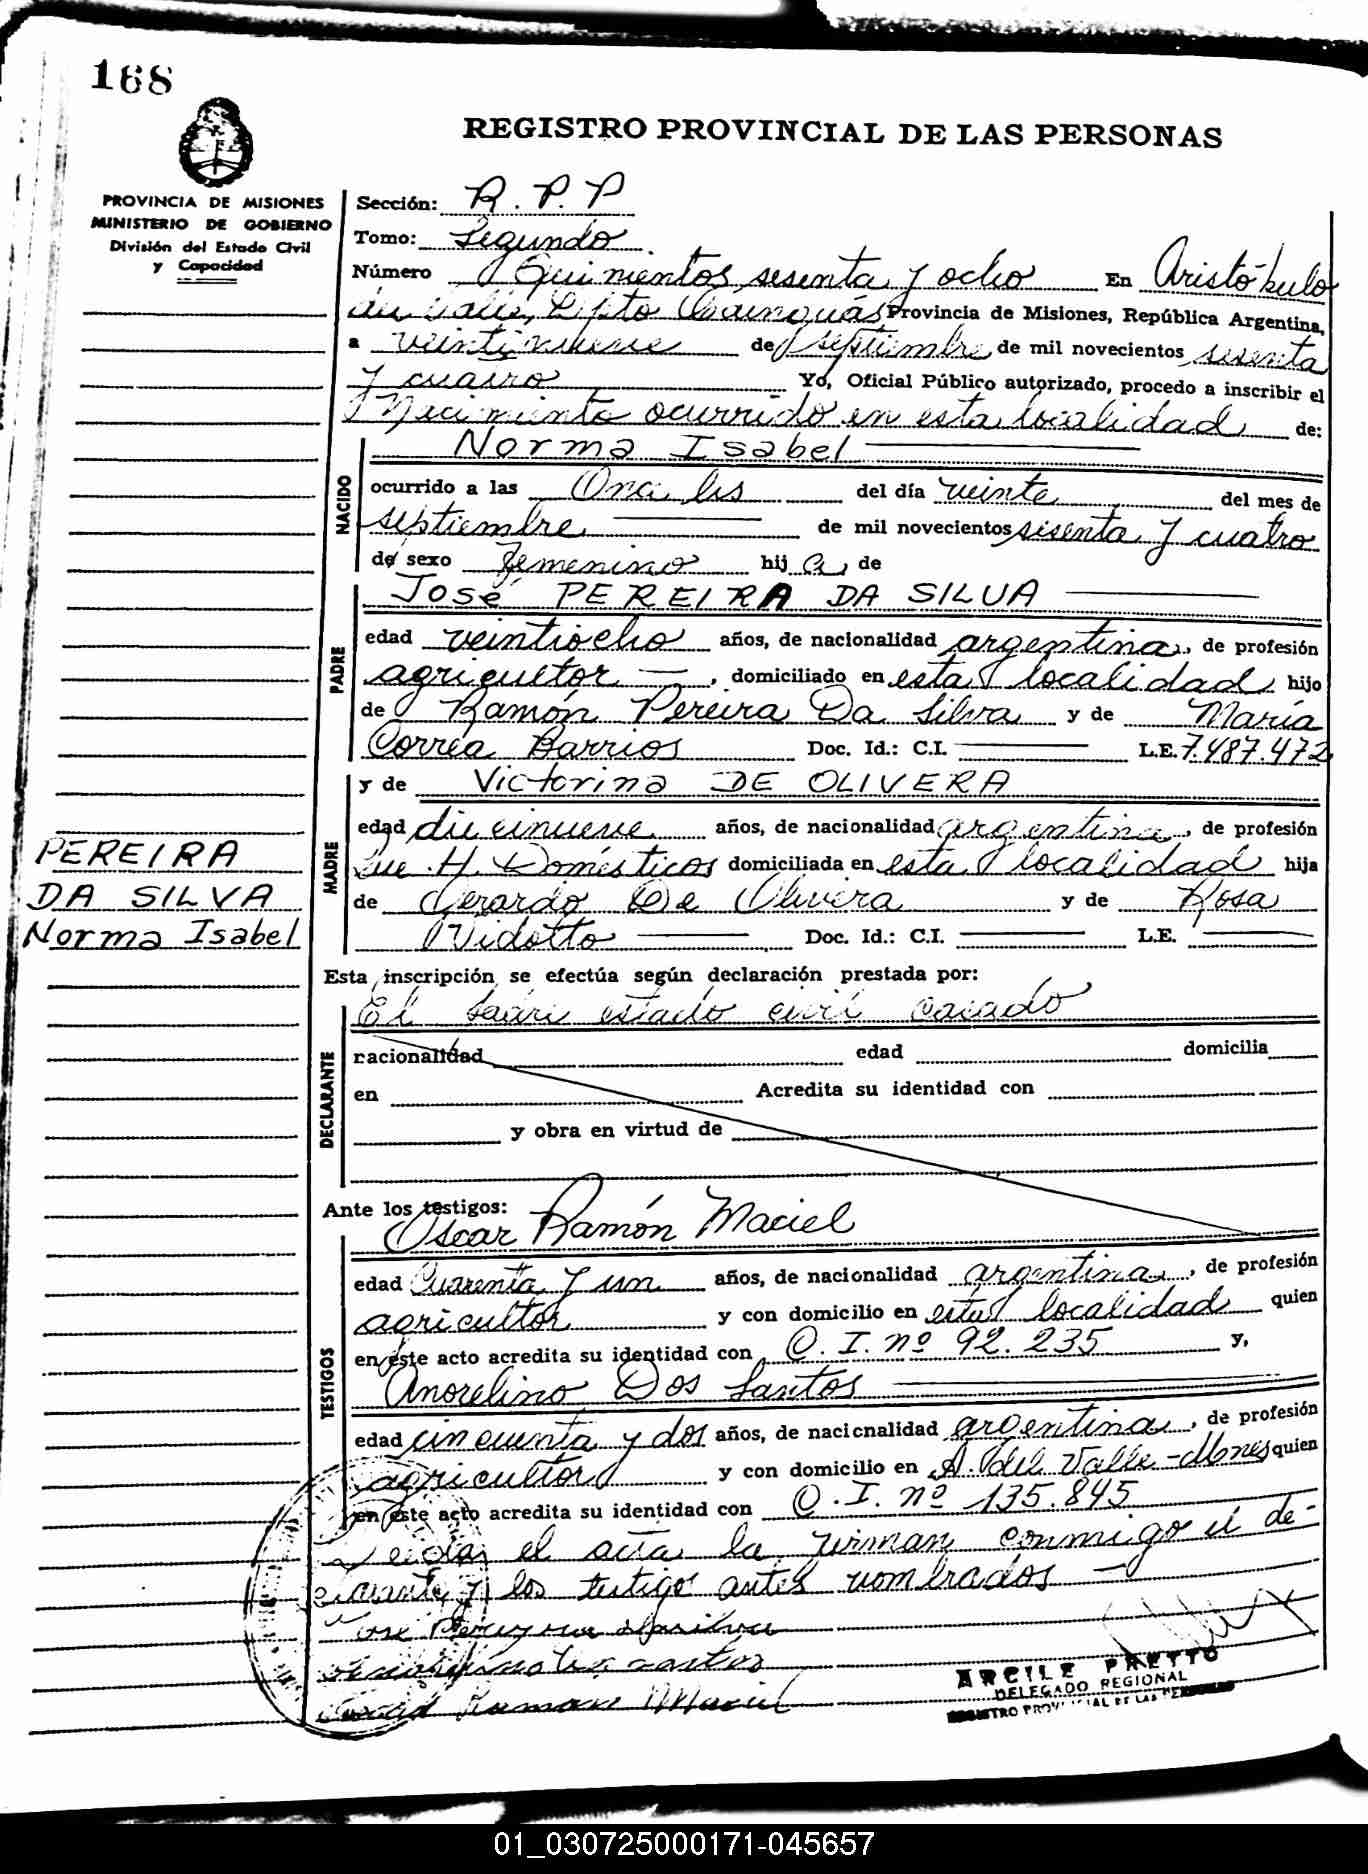 168
REGISTRO PROVINCIAL DE LAS PERSONAS
PROVINCIA DE MISIONES
MINISTERIO DE GOBIERNO
División del Estado Civil
y Capacidad
Sección: R. P. P
Tomo: Segundo
Número Quinientos sesenta y ocho En Aristóbulo
del Valle, Dpto Cainguás Provincia de Misiones, República Argentina,
a veintinueve de septiembre de mil novecientos sesenta
y cuatro Yo, Oficial Público autorizado, procedo a inscribir el
Nacimiento ocurrido en esta localidad de:
NACIDO
Norma Isabel
ocurrido a las Once hs del día veinte del mes de
septiembre de mil novecientos sesenta y cuatro
de sexo Femenino hij a de
PADRE
José PEREIRA DA SILVA
edad veintiocho años, de nacionalidad argentina, de profesión
agricultor, domiciliado en esta localidad hijo
de Ramón Pereira Da Silva y de María
Correa Barrios Doc. Id.: C.I. L.E. 7.487.472
MADRE
y de Victorina DE OLIVERA
edad diecinueve años, de nacionalidad argentina, de profesión
Que. H. Domésticos domiciliada en esta localidad hija
de Gerardo De Olivera y de Rosa
Vidotto Doc. Id.: C.I. L.E.
PEREIRA
DA SILVA
Norma Isabel
Esta inscripción se efectúa según declaración prestada por:
DECLARANTE
El padre estado civil casado
nacionalidad edad domicilia
en Acredita su identidad con
y obra en virtud de
Ante los testigos:
TESTIGOS
Oscar Ramón Maciel
edad Cuarenta y un años, de nacionalidad argentina, de profesión
agricultor y con domicilio en esta localidad quien
en este acto acredita su identidad con C. I. nº 92.235 y,
Anorelino Dos Santos
edad cincuenta y dos años, de nacionalidad argentina, de profesión
agricultor y con domicilio en A. del Valle-Mnes quien
en este acto acredita su identidad con C. I. nº 135.845
Leida el acta la firman conmigo el de-
clarante y los testigos antes nombrados
José
Ramón Maciel
ARCILE PRETTO
DELEGADO REGIONAL
REGISTRO PROVINCIAL DE LAS PERSONAS
01_030725000171-045657